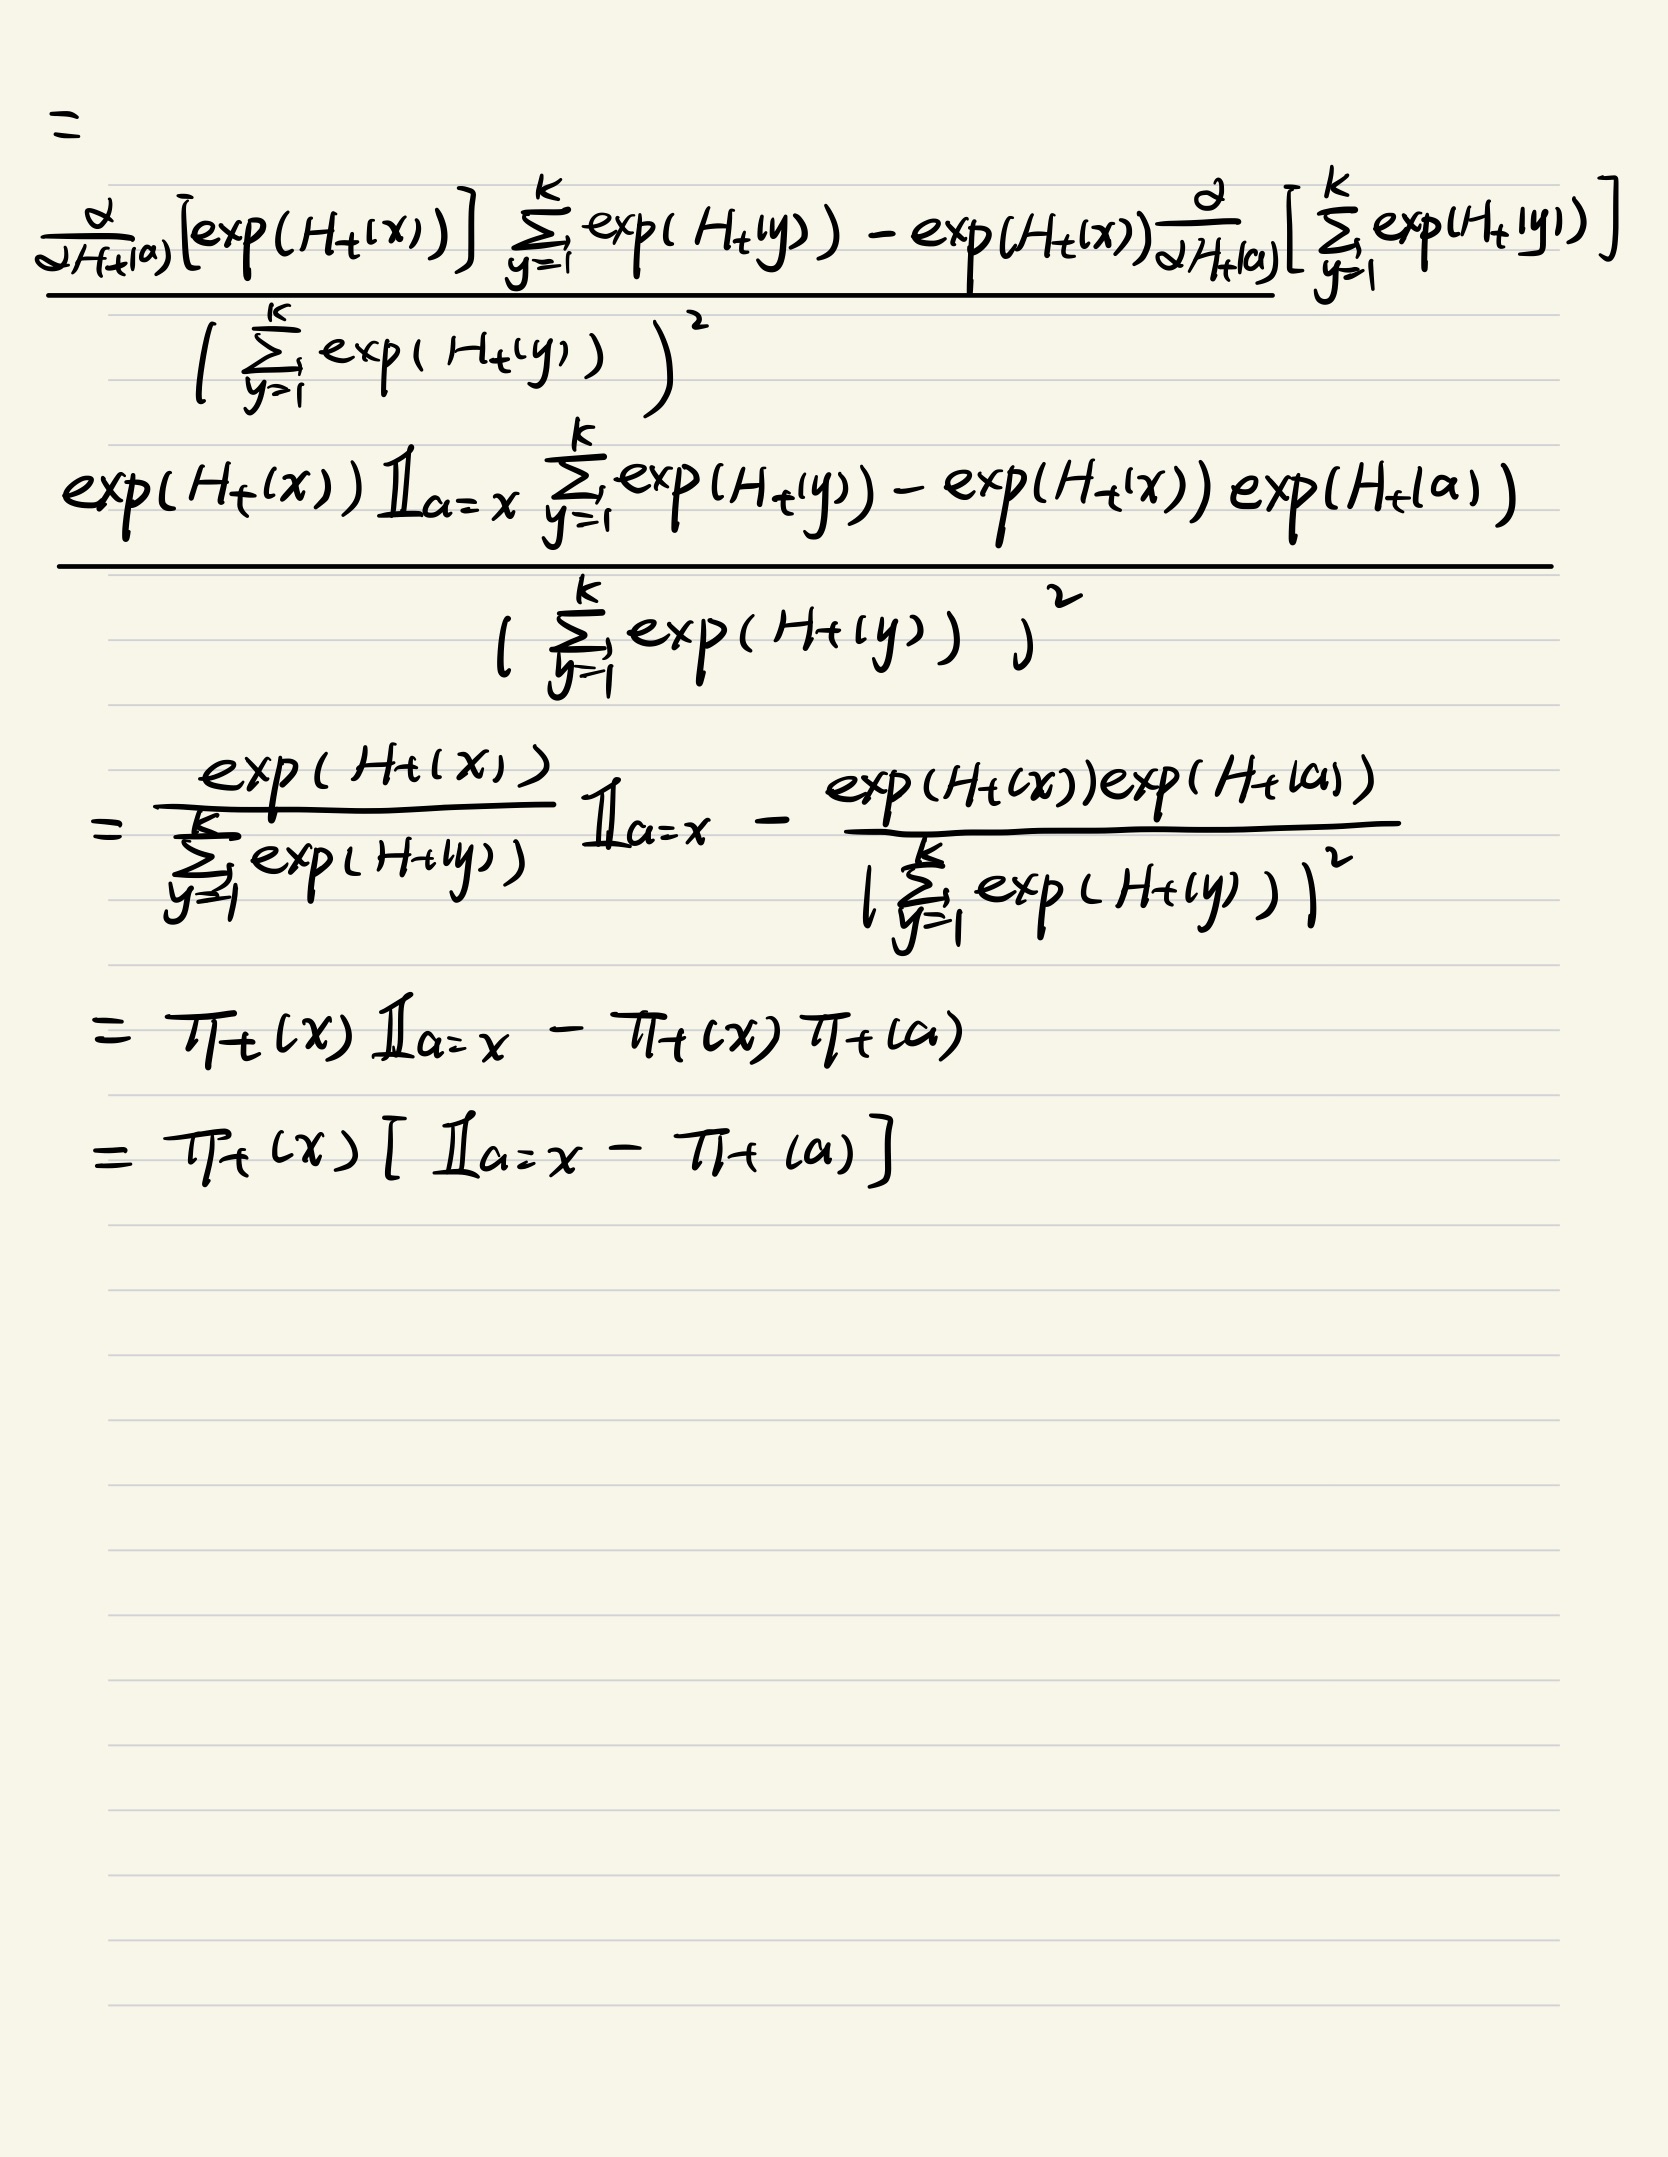 =
∂/∂H_t(a) [exp(H_t(x))] ∑_{y=1}^{k} exp(H_t(y)) − exp(H_t(x)) ∂/∂H_t(a) [∑_{y=1}^{k} exp(H_t(y))]
(∑_{y=1}^{k} exp(H_t(y)))^2
exp(H_t(x)) 𝟙_{a=x} ∑_{y=1}^{k} exp(H_t(y)) − exp(H_t(x)) exp(H_t(a))
(∑_{y=1}^{k} exp(H_t(y)))^2
= exp(H_t(x)) / ∑_{y=1}^{k} exp(H_t(y)) 𝟙_{a=x} − exp(H_t(x))exp(H_t(a)) / (∑_{y=1}^{k} exp(H_t(y)))^2
= π_t(x) 𝟙_{a=x} − π_t(x) π_t(a)
= π_t(x) [𝟙_{a=x} − π_t(a)]